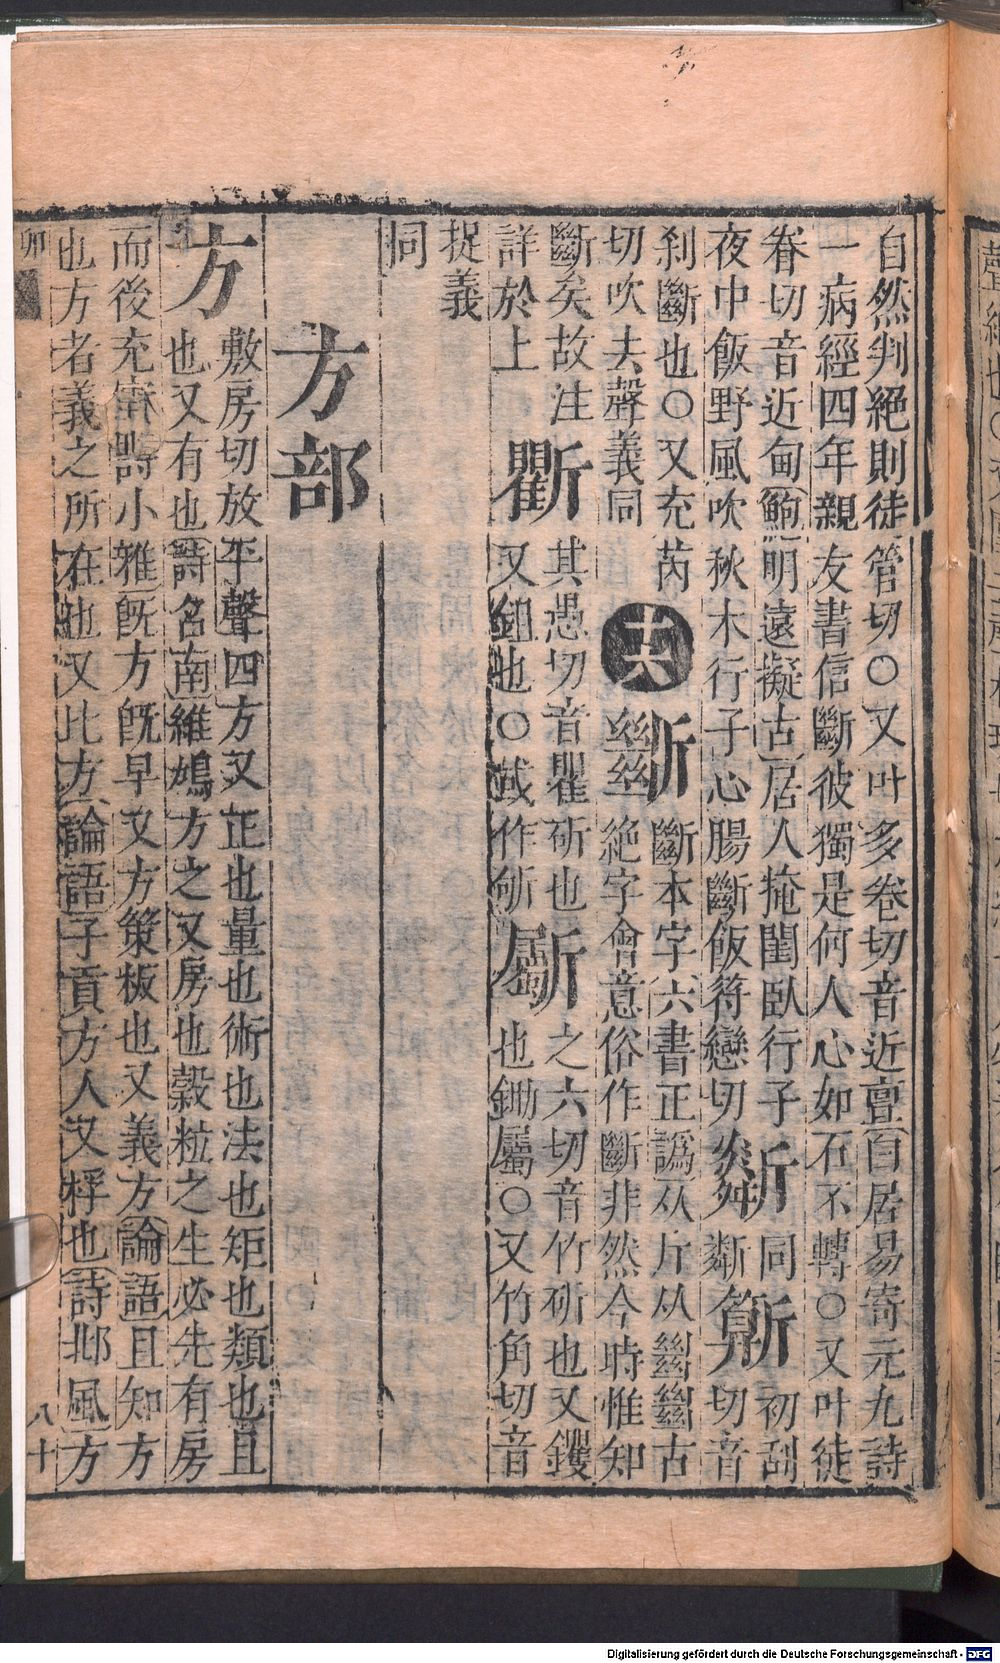 自然判絕則徒管切○又叶多卷切音近亶白居易寄元九詩
一病經四年親友書信斷彼獨是何人心如石不轉○又叶徒
眷切音近甸鮑明遠擬古居人掩閨臥行子
夜中飯野風吹秋木行子心腸斷飯符戀切
同
斷
初刮切音
刹斷也○又充芮
切吹去聲義同
十六
斷本字六書正譌从斤从𢇍𢇍古
絕字會意俗作斷非然今時惟知
斷矣故注
詳於上
其愚切音瞿斫也
又鉏也○或作斪
斸
之六切音竹斫也又钁
也鋤屬○又竹角切音
捉義
同
方部
方
敷房切放平聲四方又正也量也術也法也矩也類也且
也又有也詩召南維鳩方之又房也穀粒之生必先有房
而後充實詩小雅旣方旣早又方策板也又義方論語且知方
也方者義之所在也又比方論語子貢方人又桴也詩邶風方
卯
八十
Digitalisierung gefördert durch die Deutsche Forschungsgemeinschaft - DFG